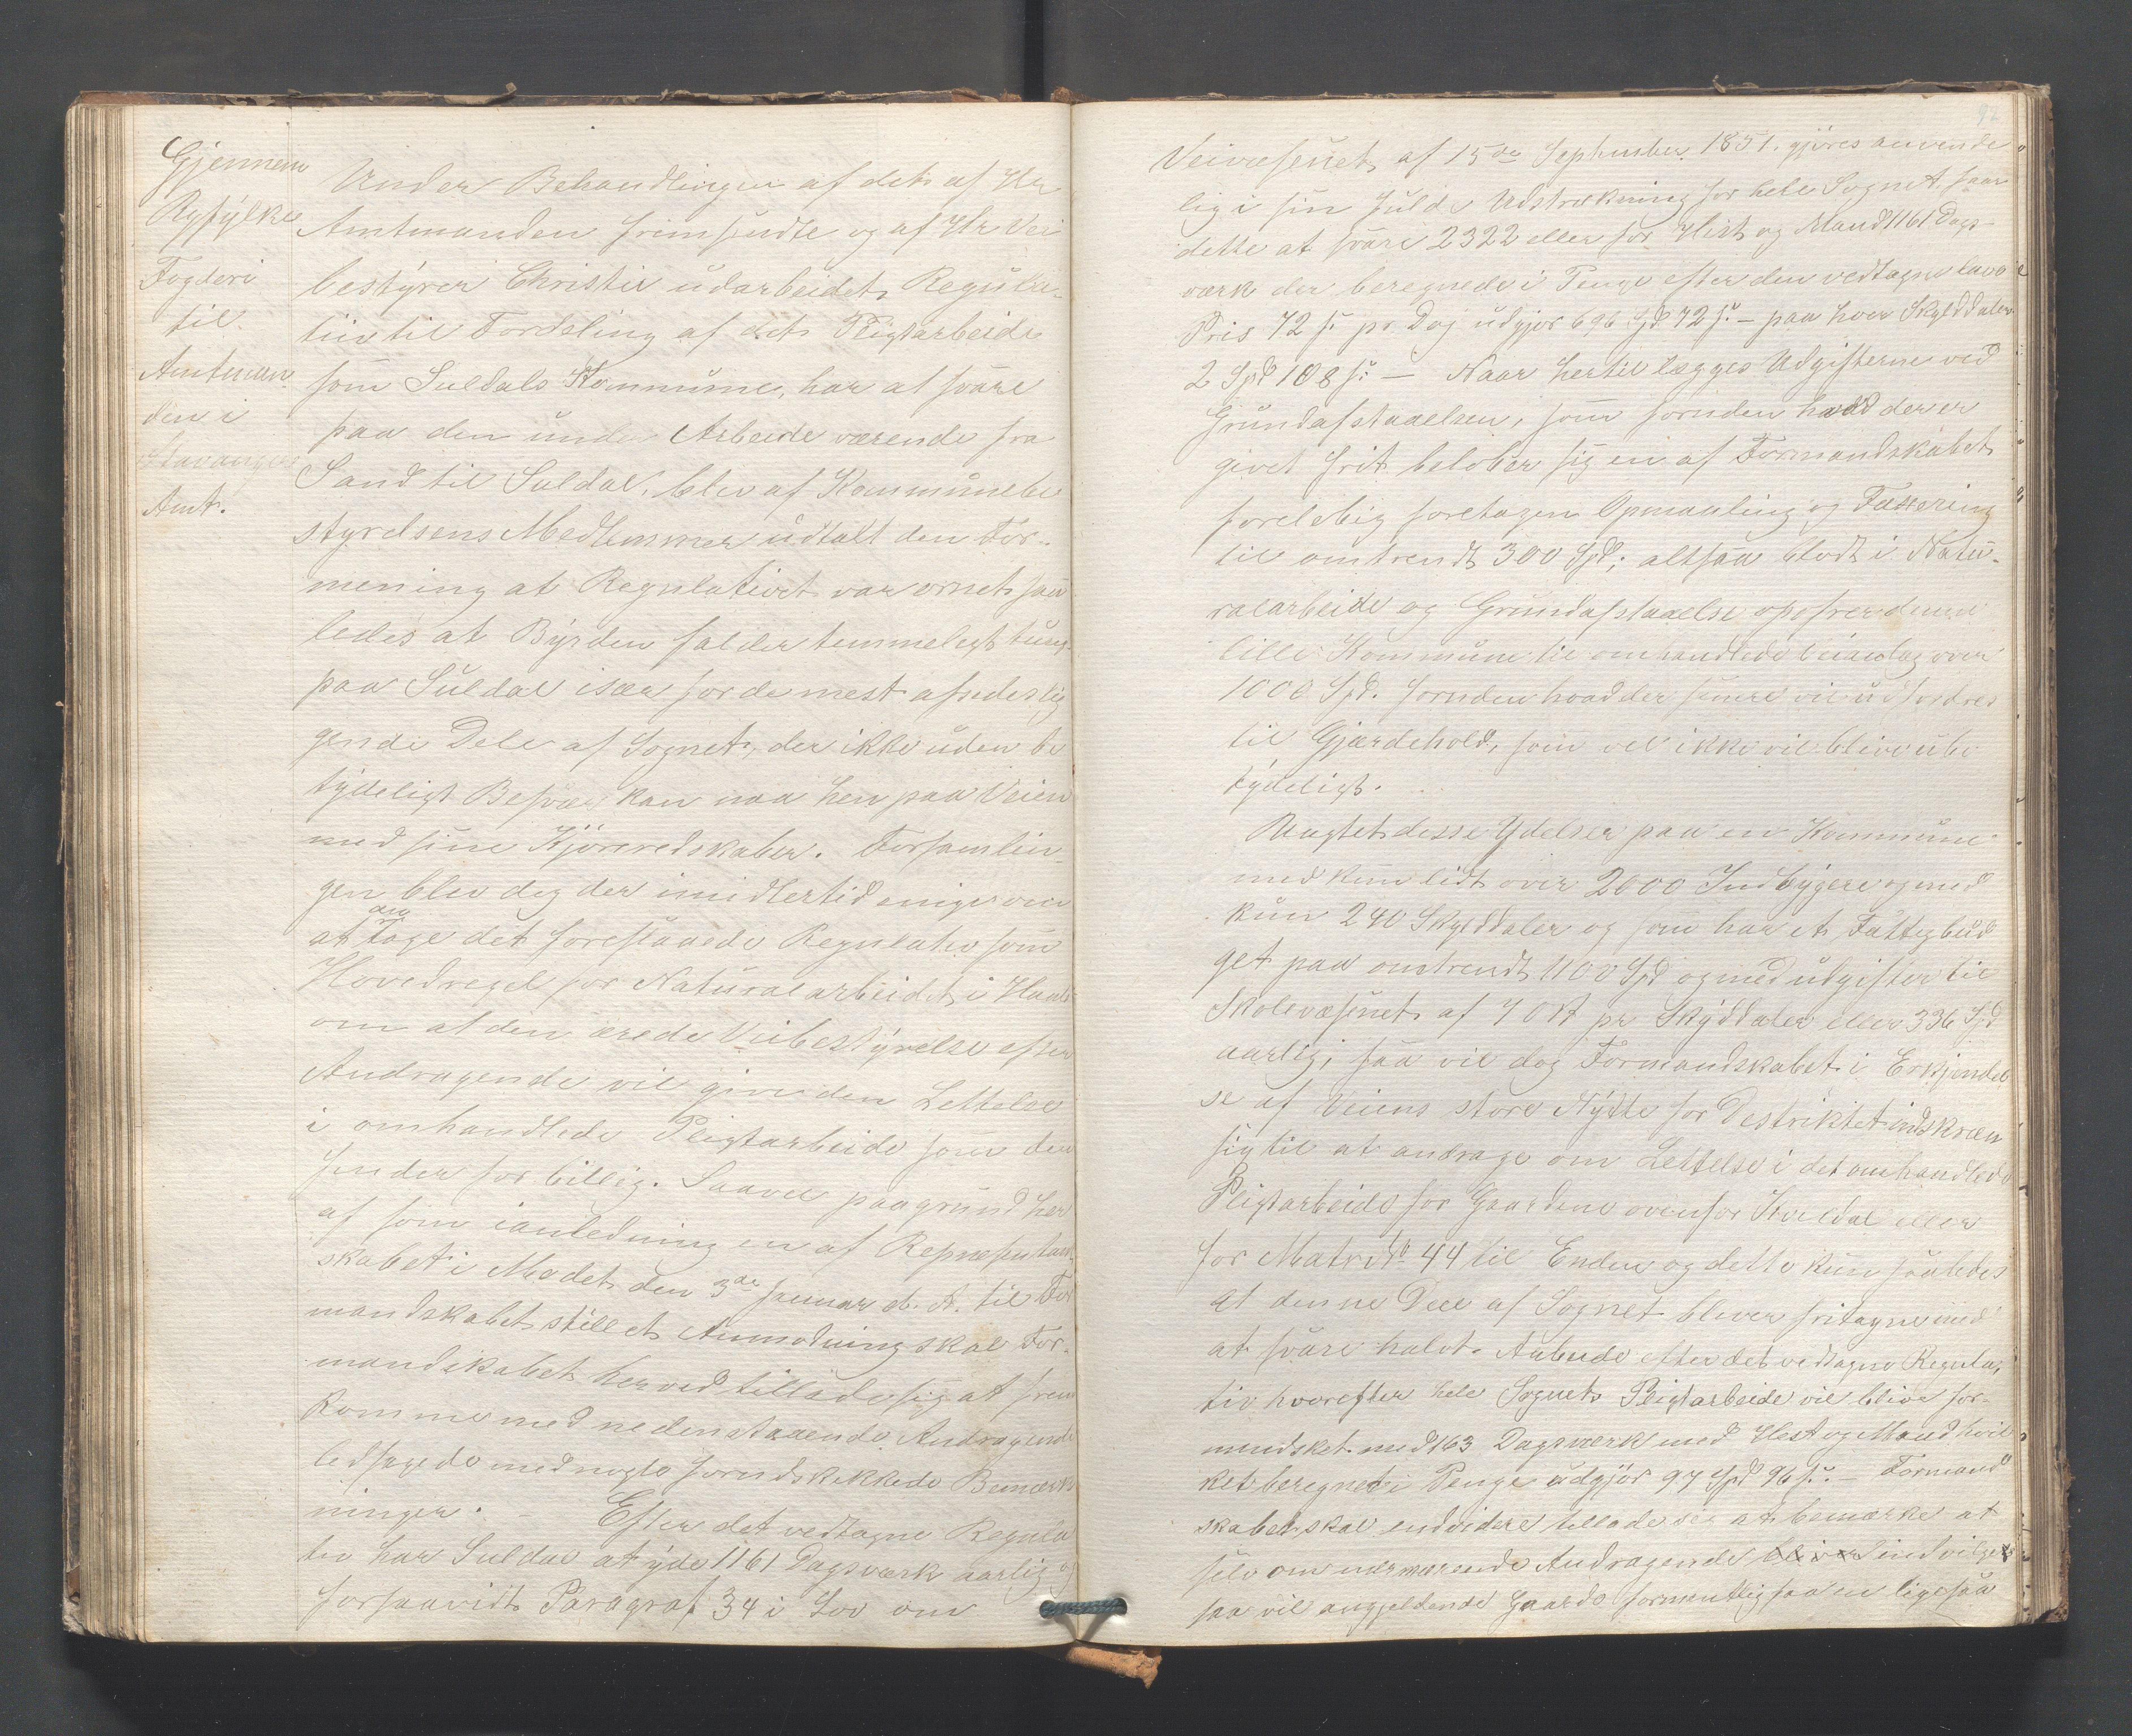 Gjennem
Ryfylke
Fogderi
til
Amtman-
den i
Stavanger
Amt.
Under Behandlingen af det af Hr
Amtmanden fremsendte og af Hr Vei
bestyrer Christie udarbeidet Regula-
tiv til Fordeling af det Pligtarbeide
som Suldals Kommune, har at svare
paa den under Arbeide værende fra
Sand til Suldal, blev af Kommunebe
styrelsens Medlemmer udtalt den For-
mening at Regulativet var ornet saa
ledes at Byrden falder temmeligt tung
paa Suldal især for de mest afsideslig
gende Dele af Sognet, der ikke uden be
tydeligt Besvær kan naa hen paa Veien
med sine Kjøreredskaber. Forsamlin-
gen blev dog der imidlertid enige om
at tage det foreslaaede Regulativ som
Hovedregel for Naturalarbeidet, i Haab
om at den ærede Veibestyrelse efter
Andragende vil give den Lettelse
i omhandlede Pligtarbeide som den
finder for billig. Saavel paagrund her
af som ianledning en af Repræsentan
skabet i Mødet den 3de Januar d. A. til For
mandskabet stillet Anmodning skal For-
mandskabet herved tillade sig at frem
komme med nedenstaaende Andragende
ledsagede med nogle forudskikkede Bemærk
ninger. - Efter det vedtagne Regula
tiv har Suldal at yde 1161 Dagsværk aarlig og
forsaavidt Paragraf 34 i Lov om
Veivæsenet af 15de September 1851. gjøres anvende
lig i sin fulde Udstrækning for hele Sognet faar
dette at svare 2322 eller for Hest og Mand 1161 Dags-
værk der beregnede i Penge efter den vedtagne lave
Pris 72 s. pr Dag udgjør 696 Spd 72 s. - paa hver Skylddaler
2 Spd 108 s. - Naar hertil lægges Udgifterne ved
Grundafstaaelsen, som foruden hvad der er
givet frit beløber sig en af Formandskabet
foreløbig foretagen Opmaaling og Taxering
til omtrendt 300 Spd; altsaa blodt i Natu-
ralarbeide og Grundafstaaelse opofrer denne
lille Kommune til omhandlede Veianlæg over
1000 Spd. foruden hvad der senere vil udfordres
til Gjærdehold, som vel ikke vil blive ube
tydeligt.
Uagtet disse Ydelser paa en Kommune
med kun lidt over 2000 Indbygere og med
kun 240 Skylddaler og som har et Fattigbud
get paa omtrendt 1100 Spd og med udgifter til
Skolevæsenet af 7 Ort pr Skylddaler eller 336 Spd
aarlig, saa vil dog Formandskabet i Erkjendel
se af Veiens store Nytte for Destriktet indskræn
sig til at andrage om Lettelse i det omhandlede
Pligtarbeide for Gaardene ovenfor Suldal eller
for Matr No 44 til Enden og dette kun saaledes
at denne Deel af Sognet bliver fritagne med
at svare halvt Arbeide efter det vedtagne Regula-
tiv hvorefter hele Sognets Pligtarbeide vil blive for-
mindsket med 163 Dagsværk med Hest og Mand hvil
ket beregnet i Penge udgjør 97 Spd 96 s. - Formand
skabet skal endvidere tillade sig at bemærke at
selv om nærværende Andragende bliver indvilget
saa vil angjeldende Gaarde formentlig faa en ligesaa